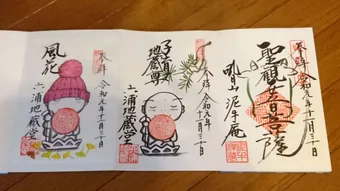 奉拝
聖観世音菩薩
令和元年十一月三十日
吸江山 泥牛庵
奉拝
子育
地蔵尊
令和元年
十一月三十日
六浦地蔵堂
奉拝
風花
令和元年十一月三十日
六浦地蔵堂